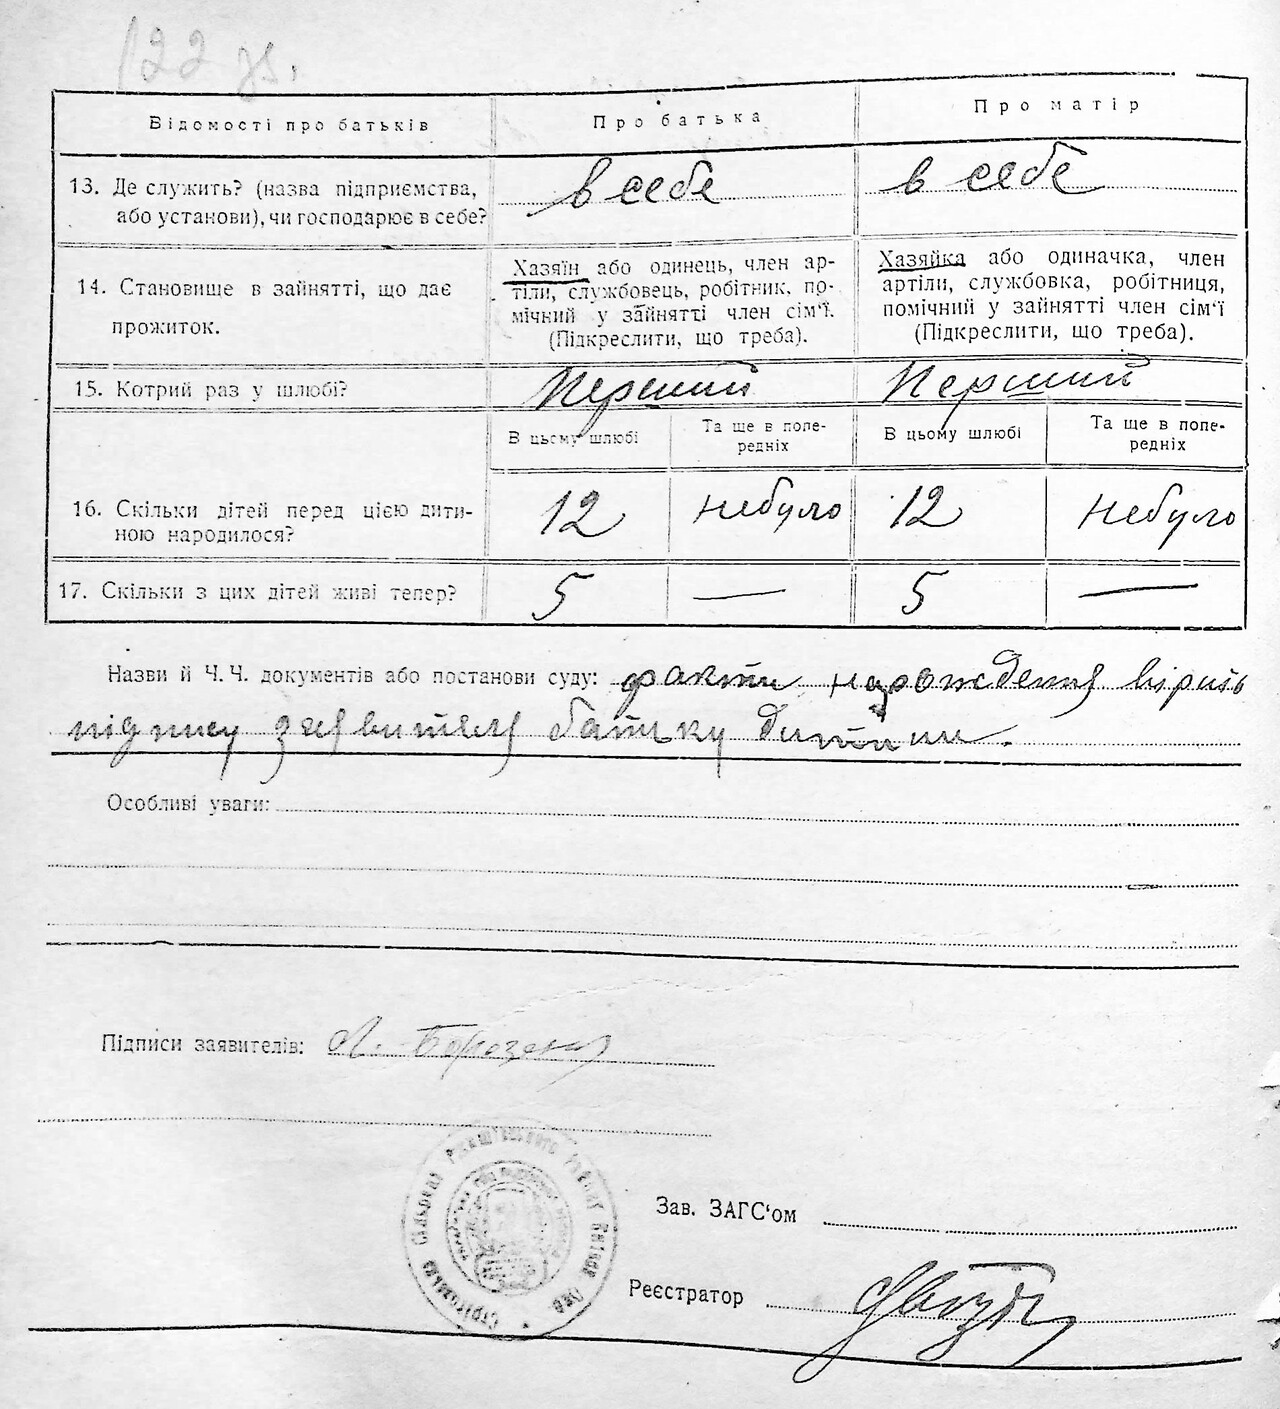 122 зв.
Відомості про батьків
Про батька
Про матір
13. Де служить? (назва підприємства,
або установи), чи господарює в себе?
в себе
в себе
14. Становище в зайнятті, що дає
прожиток.
Хазяїн або одинець, член ар-
тіли, службовець, робітник, по-
мічний у зайнятті член сім'ї.
(Підкреслити, що треба).
Хазяйка або одиначка, член
артіли, службовка, робітниця,
помічний у зайнятті член сім'ї
(Підкреслити, що треба).
15. Котрий раз у шлюбі?
Перший
Перший
В цьому шлюбі
Та ще в попе-
редніх
В цьому шлюбі
Та ще в попе-
редніх
16. Скільки дітей перед цією дити-
ною народилося?
12
небуло
12
небуло
17. Скільки з цих дітей живі тепер?
5
—
5
—
Назви й Ч. Ч. документів або постанови суду: факти народження
підпису заявителя батьку дитини.
Особливі уваги:
Підписи заявителів:
Зав. ЗАГС'ом
Реєстратор